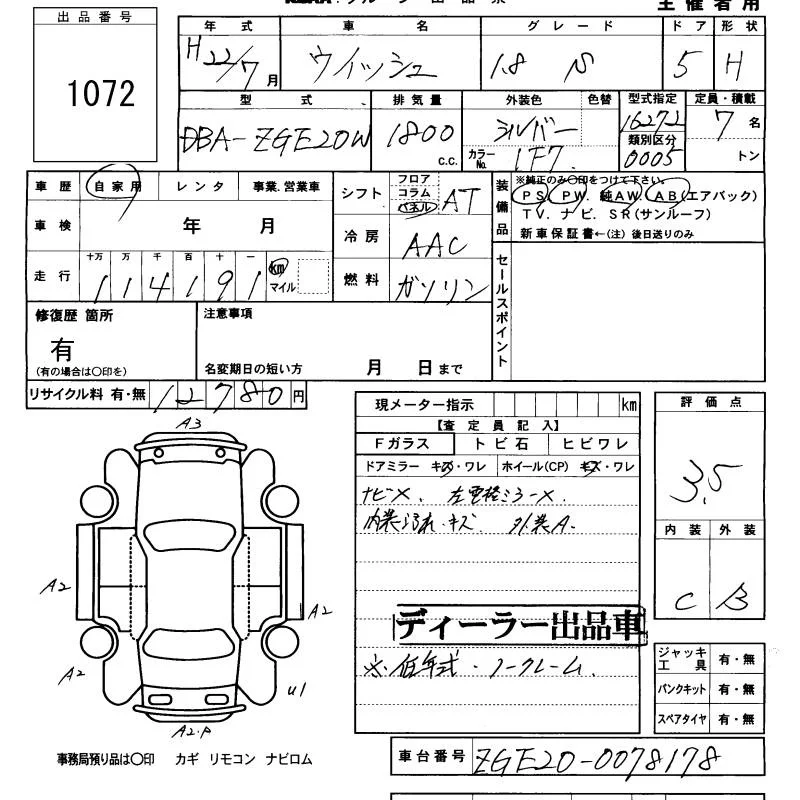 主催者用
出品番号
1072
年式 車名 グレード ドア 形状
H22/7月 ウィッシュ 1.8 S 5 H
型式 排気量 外装色 色替 型式指定 定員・積載
DBA-ZGE20W 1800 c.c. シルバー 16272 7名
カラーNo. 1F7 類別区分 0005 トン
車歴 自家用 レンタ 事業.営業車
シフト フロア コラム パネル AT
装備品 ※純正のみ〇印をつけて下さい。
PS. PW. 純AW. AB(エアバック)
TV. ナビ. SR(サンルーフ)
新車保証書←(注) 後日送りのみ
車検 年 月
冷房 AAC
走行 十万 万 千 百 十 一
114191 km マイル
燃料 ガソリン
セールスポイント
修復歴 箇所
有
(有の場合は〇印を)
注意事項
名変期日の短い方 月 日まで
リサイクル料 有・無 12780円
現メーター指示 km
【査定員記入】
Fガラス トビ石 ヒビワレ
ドアミラー キズ・ワレ ホイール(CP) キズ・ワレ
ナビX. 左電格ミラーX.
内装よごれ.キズ 外装A.
ディーラー出品車
※低年式・ノークレーム.
評価点
3.5
内装 外装
C B
A3
A2
A2
A2
U1
A2.P
ジャッキ工具 有・無
パンクキット 有・無
スペアタイヤ 有・無
事務局預り品は〇印 カギ リモコン ナビロム
車台番号 ZGE20-0078178